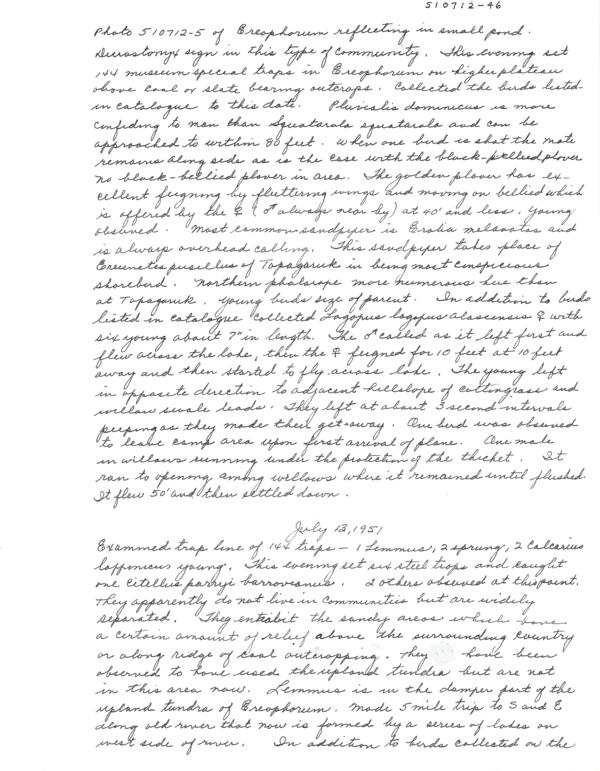 510712-46
Photo 510712-5 of Ereophorum reflecting in small pond.
Dicrostonyx sign in this type of community. This evening set
144 museum special traps in Ereophorum on higher plateau
above coal or slate bearing outcrops. Collected the birds listed
in catalogue to this date. Pluvialis dominicus is more
confiding to man than Squatarola squatarola and can be
approached to within 80 feet. When one bird is shot the mate
remains along side as is the case with the black-bellied plover
no black-bellied plover in area. The golden plover has ex-
cellent feigning by fluttering wings and moving on bellied which
is offered by the ♀ (♂ always near by) at 40' and less. Young
observed. Most common sandpiper is Erolia melanotas and
is always overhead calling. This sandpiper takes place of
Ereunetes pusillus of Topagaruk in being most conspicious
shorebird. Northern phalarope more numerous here than
at Topagaruk. Young birds size of parent. In addition to birds
listed in catalogue collected Lagopus lagopus alascensis ♀ with
six young about 7" in length. The ♂ called as it left first and
flew across the lake, then the ♀ feigned for 10 feet at 10 feet
away and then started to fly across lake. The young left
in opposite direction to adjacent hillslope of cottongrass and
willow swale leads. They left at about 3 second intervals
peeping as they made their get-away. One bird was observed
to leave camp area upon first arrival of plane. One male
in willows running under the protection of the thicket. It
ran to opening among willows where it remained until flushed.
It flew 50' and then settled down.
July 13, 1951
Examined trap line of 144 traps - 1 Lemmus, 2 sprung, 2 Calcarius
lapponicus young. This evening set six steel traps and caught
one Citellus parryi barrowensis. 2 others observed at this point.
They apparently do not live in communities but are widely
separated. They enhabit the sandy areas which have
a certain amount of relief above the surrounding country
or along ridge of coal outcropping. They have been
observed to have used the upland tundra but are not
in this area now. Lemmus is in the damper part of the
upland tundra of Ereophorum. Made 5 mile trip to S and E
along old river that now is formed by a series of lakes on
west side of river. In addition to birds collected on the